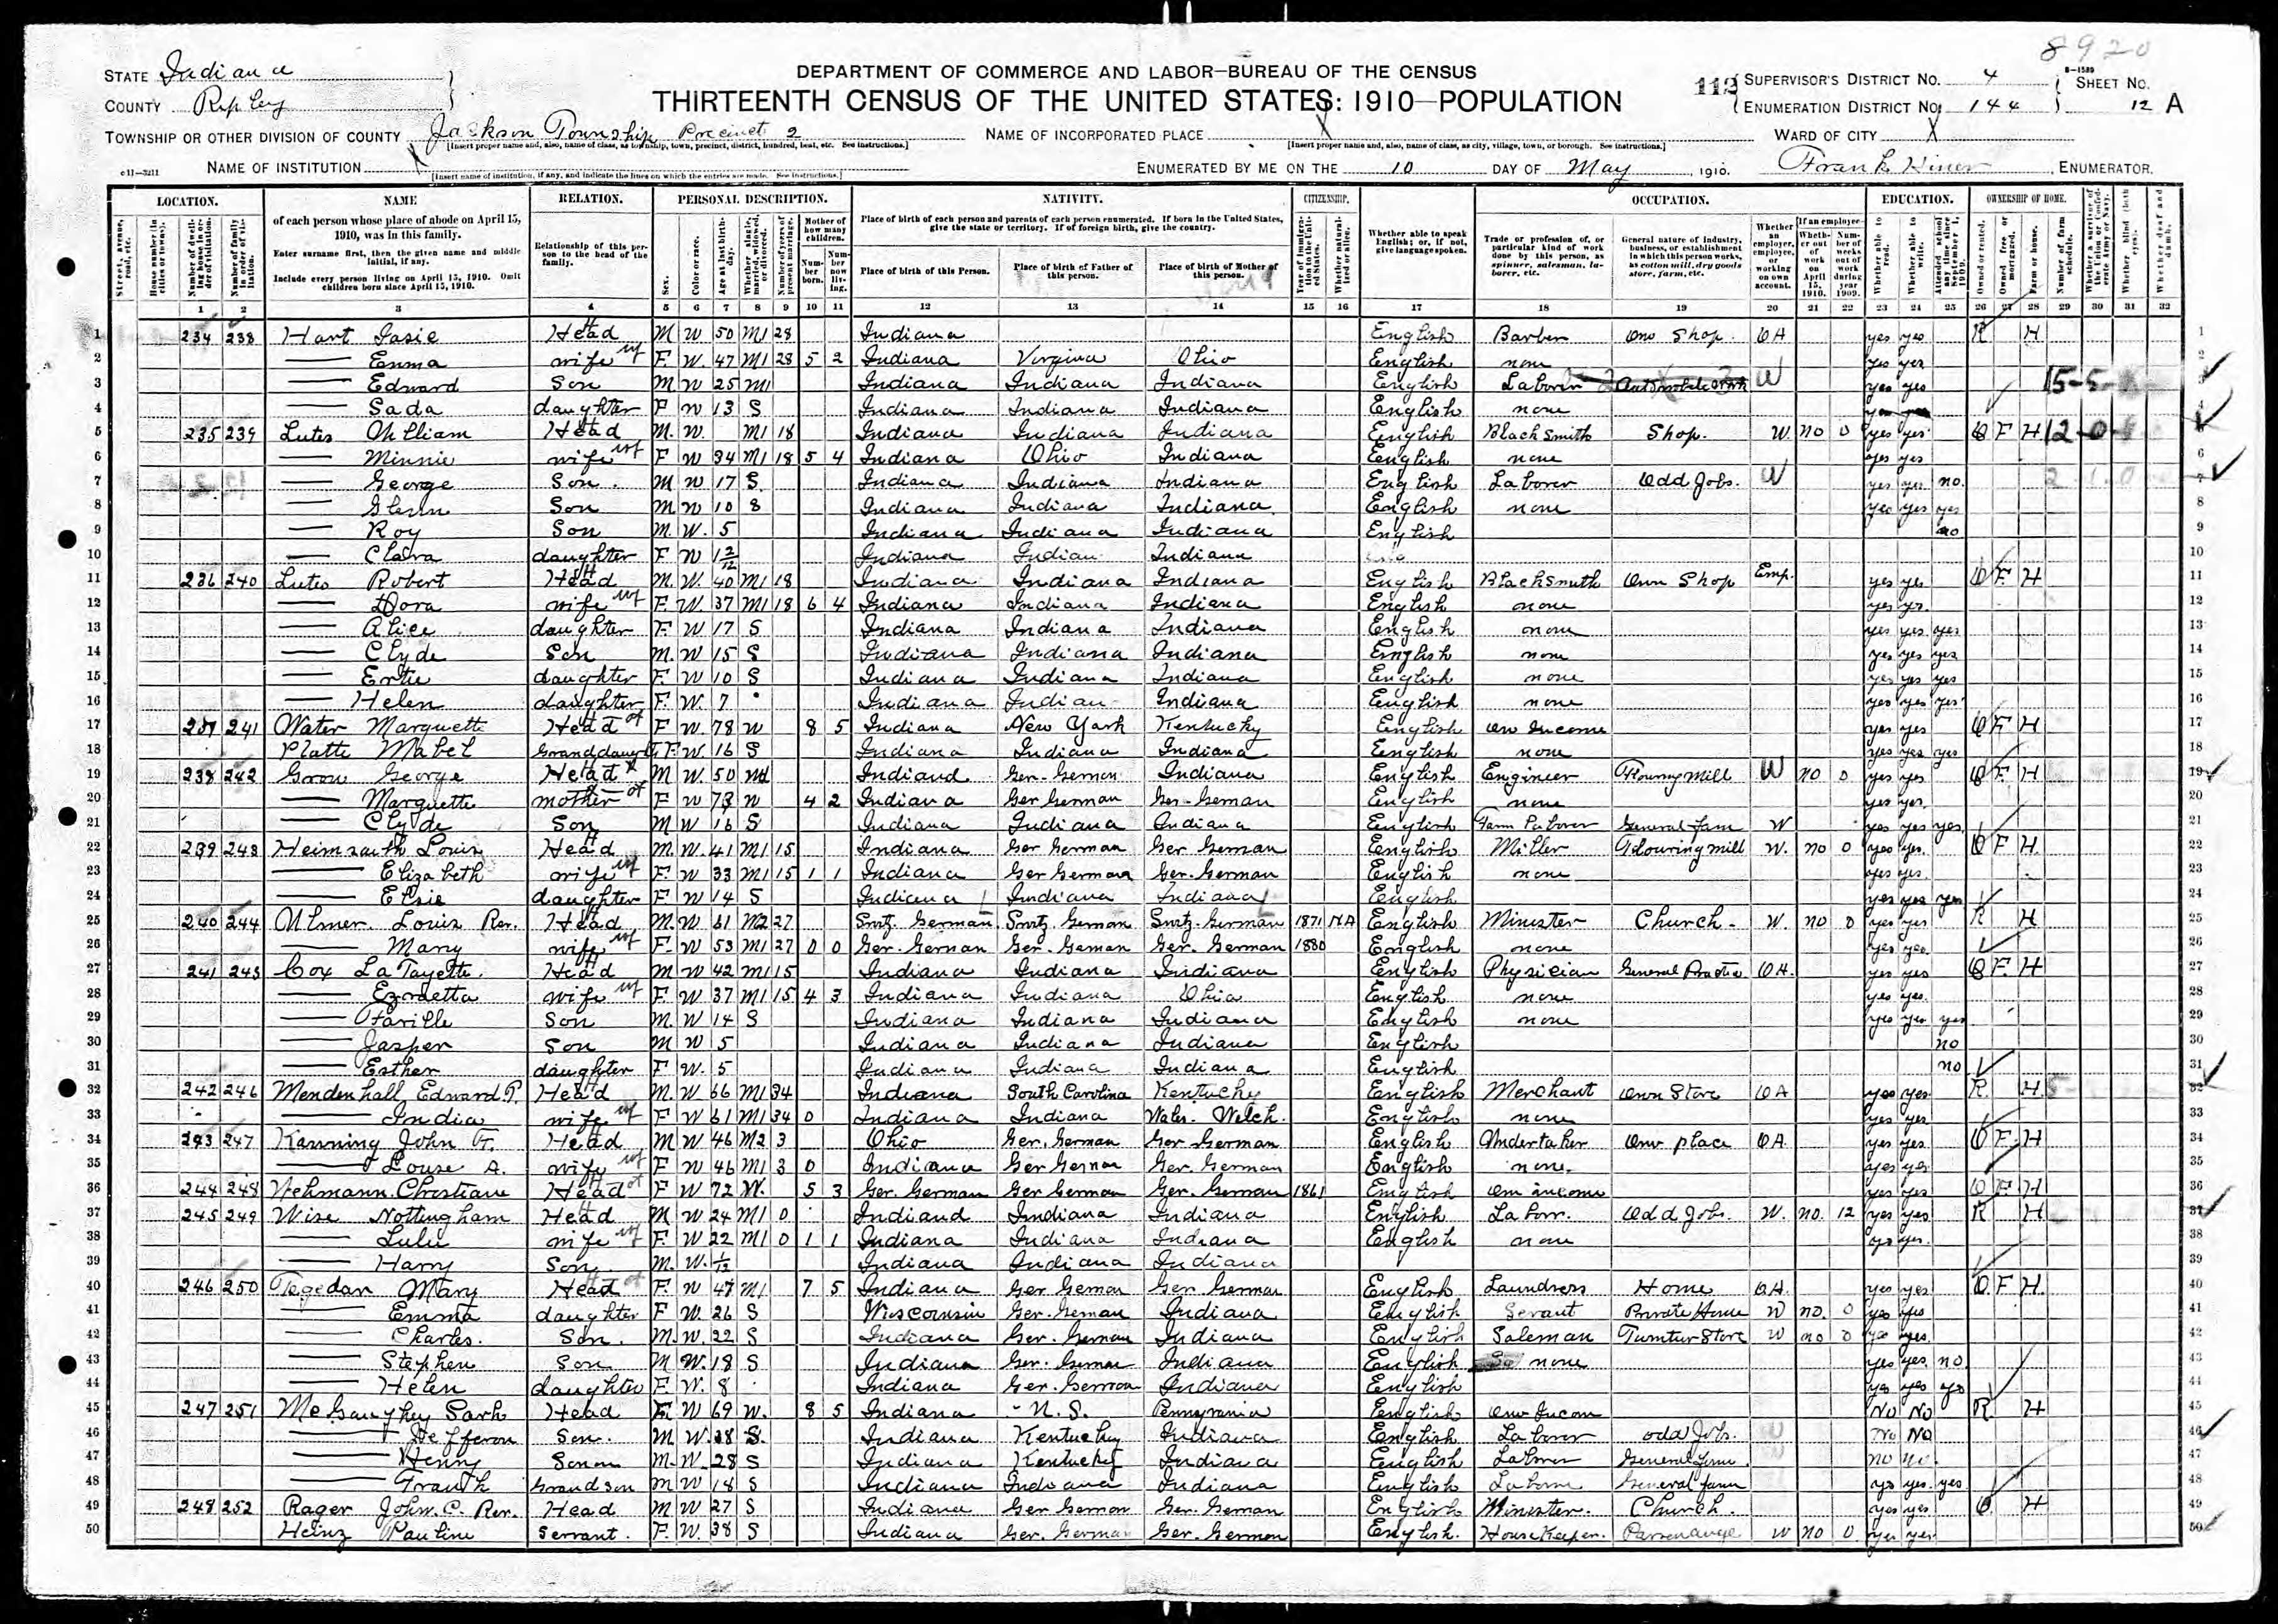 8920
STATE Indiana
COUNTY Ripley
DEPARTMENT OF COMMERCE AND LABOR—BUREAU OF THE CENSUS
THIRTEENTH CENSUS OF THE UNITED STATES: 1910—POPULATION
112 SUPERVISOR'S DISTRICT NO. 4 SHEET NO.
ENUMERATION DISTRICT NO. 144 12 A
TOWNSHIP OR OTHER DIVISION OF COUNTY Jackson Township Precinct 2 NAME OF INCORPORATED PLACE X WARD OF CITY X
NAME OF INSTITUTION X ENUMERATED BY ME ON THE 10 DAY OF May, 1910. Frank Hiner, ENUMERATOR.
LOCATION. NAME RELATION. PERSONAL DESCRIPTION. NATIVITY. CITIZENSHIP. OCCUPATION. EDUCATION. OWNERSHIP OF HOME.
of each person whose place of abode on April 15, 1910, was in this family.
Enter surname first, then the given name and middle initial, if any.
Include every person living on April 15, 1910. Omit children born since April 15, 1910.
Relationship of this person to the head of the family.
Place of birth of each person and parents of each person enumerated. If born in the United States, give the state or territory. If of foreign birth, give the country.
Place of birth of this Person. Place of birth of Father of this person. Place of birth of Mother of this person.
Whether able to speak English; or, if not, give language spoken.
1 2 3 4 5 6 7 8 9 10 11 12 13 14 15 16 17 18 19 20 21 22 23 24 25 26 27 28 29 30 31 32
1 234 238 Hart Head M W 50 M1 28 Indiana English Barber Own Shop OA yes yes R H
2 Emma wife F W 47 M1 28 5 2 Indiana Ohio English none yes yes
3 Edward Son M W 25 M1 Indiana Indiana Indiana English Laborer W yes yes
4 Sada daughter F W 13 S Indiana Indiana Indiana English none
5 235 239 Lutes William Head M W M1 18 Indiana Indiana Indiana English Blacksmith Shop. W no 0 yes yes O F H 12-0
6 Minnie wife F W 34 M1 18 5 4 Indiana Ohio Indiana English none yes yes
7 George Son M W 17 S Indiana Indiana Indiana English Laborer Odd Jobs. W yes yes no
8 Glenn Son M W 10 S Indiana Indiana Indiana English none yes yes yes
9 Roy Son M W 5 Indiana Indiana Indiana English no
10 Clara daughter F W 1 2/12 Indiana Indian Indiana
11 236 240 Lutes Robert Head M W 40 M1 18 Indiana Indiana Indiana English Blacksmith Own Shop Emp. yes yes O F H
12 Dora wife F W 37 M1 18 6 4 Indiana Indiana Indiana English none yes yes
13 Alice daughter F W 17 S Indiana Indiana Indiana English none yes yes yes
14 Clyde Son M W 15 S Indiana Indiana Indiana English none yes yes yes
15 daughter F W 10 S Indiana Indiana Indiana English none yes yes yes
16 Helen daughter F W 7 Indiana Indian Indiana English none yes yes yes
17 237 241 Water Marguette Head F W 78 W 8 5 Indiana New York Kentucky English Own Income yes yes O F H
18 Platte Mabel F W 16 S Indiana Indiana Indiana English none yes yes yes
19 238 242 George Head M W 50 Indiana Ger-German Indiana English Engineer Flouring Mill W no 0 yes yes O F H
20 Marguette mother F W 73 W 4 2 Indiana Ger German Ger-German English none yes yes
21 Clyde Son M W 16 S Indiana Indiana Indiana English Farm Laborer General Farm W yes yes yes
22 239 243 Heimsauth Louis Head M W 41 M1 15 Indiana Ger German Ger German English Miller Flouring mill W. no 0 yes yes O F H
23 Elizabeth wife F W 33 M1 15 1 1 Indiana Ger German Ger-German English none yes yes
24 Elsie daughter F W 14 S Indiana Indiana Indiana English yes yes yes
25 240 244 Ulmer Louis Rev. Head M W 61 M2 27 Swtz. German Swtz. German Swtz. German 1871 NA English Minister Church W. no 0 yes yes R H
26 Mary wife F W 53 M1 27 0 0 Ger. German Ger. German Ger. German 1880 English none yes yes
27 241 245 Cox La Fayette Head M W 42 M1 15 Indiana Indiana Indiana English Physician General Practice OA yes yes O F H
28 wife F W 37 M1 15 4 3 Indiana Indiana Ohio English none yes yes
29 Faville Son M W 14 S Indiana Indiana Indiana English none yes yes yes
30 Jasper Son M W 5 Indiana Indiana Indiana English no
31 Esther daughter F W 5 Indiana Indiana Indiana English no
32 242 246 Mendenhall Edward P. Head M W 66 M1 34 Indiana South Carolina Kentucky English Merchant Own Store OA yes yes R H
33 India wife F W 61 M1 34 0 Indiana Indiana Wales. Welch English none yes yes
34 243 247 Kanning John F. Head M W 46 M2 3 Ohio Ger. German Ger German English Undertaker Own place OA yes yes O F H
35 Louise A. wife F W 46 M1 3 0 Indiana Ger German Ger. German English none yes yes
36 244 248 Nehmann Christiane Head F W 72 W. 5 3 Ger. German Ger German Ger. German 1861 English Own income yes yes O F H
37 245 249 Wise Nottingham Head M W 24 M1 0 Indiana Indiana Indiana English Labor. Odd Jobs W. no. 12 yes yes R H
38 Lulu wife F W 22 M1 0 1 1 Indiana Indiana Indiana English none yes yes
39 Harry Son M W 1/12 Indiana Indiana Indiana
40 246 250 Tegedar Mary Head F W 47 M1 7 5 Indiana Ger German Ger German English Laundress Home OA yes yes O F H
41 Emma daughter F W 26 S Wisconsin Ger. German Indiana English Servant Private Home W no. 0 yes yes
42 Charles. Son. M W 22 S Indiana Ger. German Indiana English Saleman Furnitur Store W no 0 yes yes
43 Stephen Son M W 18 S Indiana Ger. German Indiana English none yes yes no
44 Helen daughter F W 8 Indiana Ger. German Indiana English yes yes yes
45 247 251 McGaughey Sarh Head F W 69 W. 8 5 Indiana N. S. Pennsyvania English Own Incom No No R H
46 Jefferson Son. M W 38 S Indiana Kentucky Indiana English Laborer odd Jobs. No No
47 Henry Son M W 28 S Indiana Kentucky Indiana English Labor General Farm no no
48 Frank Grandson M W 18 S Indiana Indiana Indiana English Labor General farm yes yes yes
49 248 252 Rager John. C. Rev. Head M W 27 S Indiana Ger German Ger. German English Minister. Church. yes yes O H
50 Heinz Pauline Servant. F W 38 S Indiana Ger. German Ger. German English. House Keeper. Parsonange W no 0 yes yes